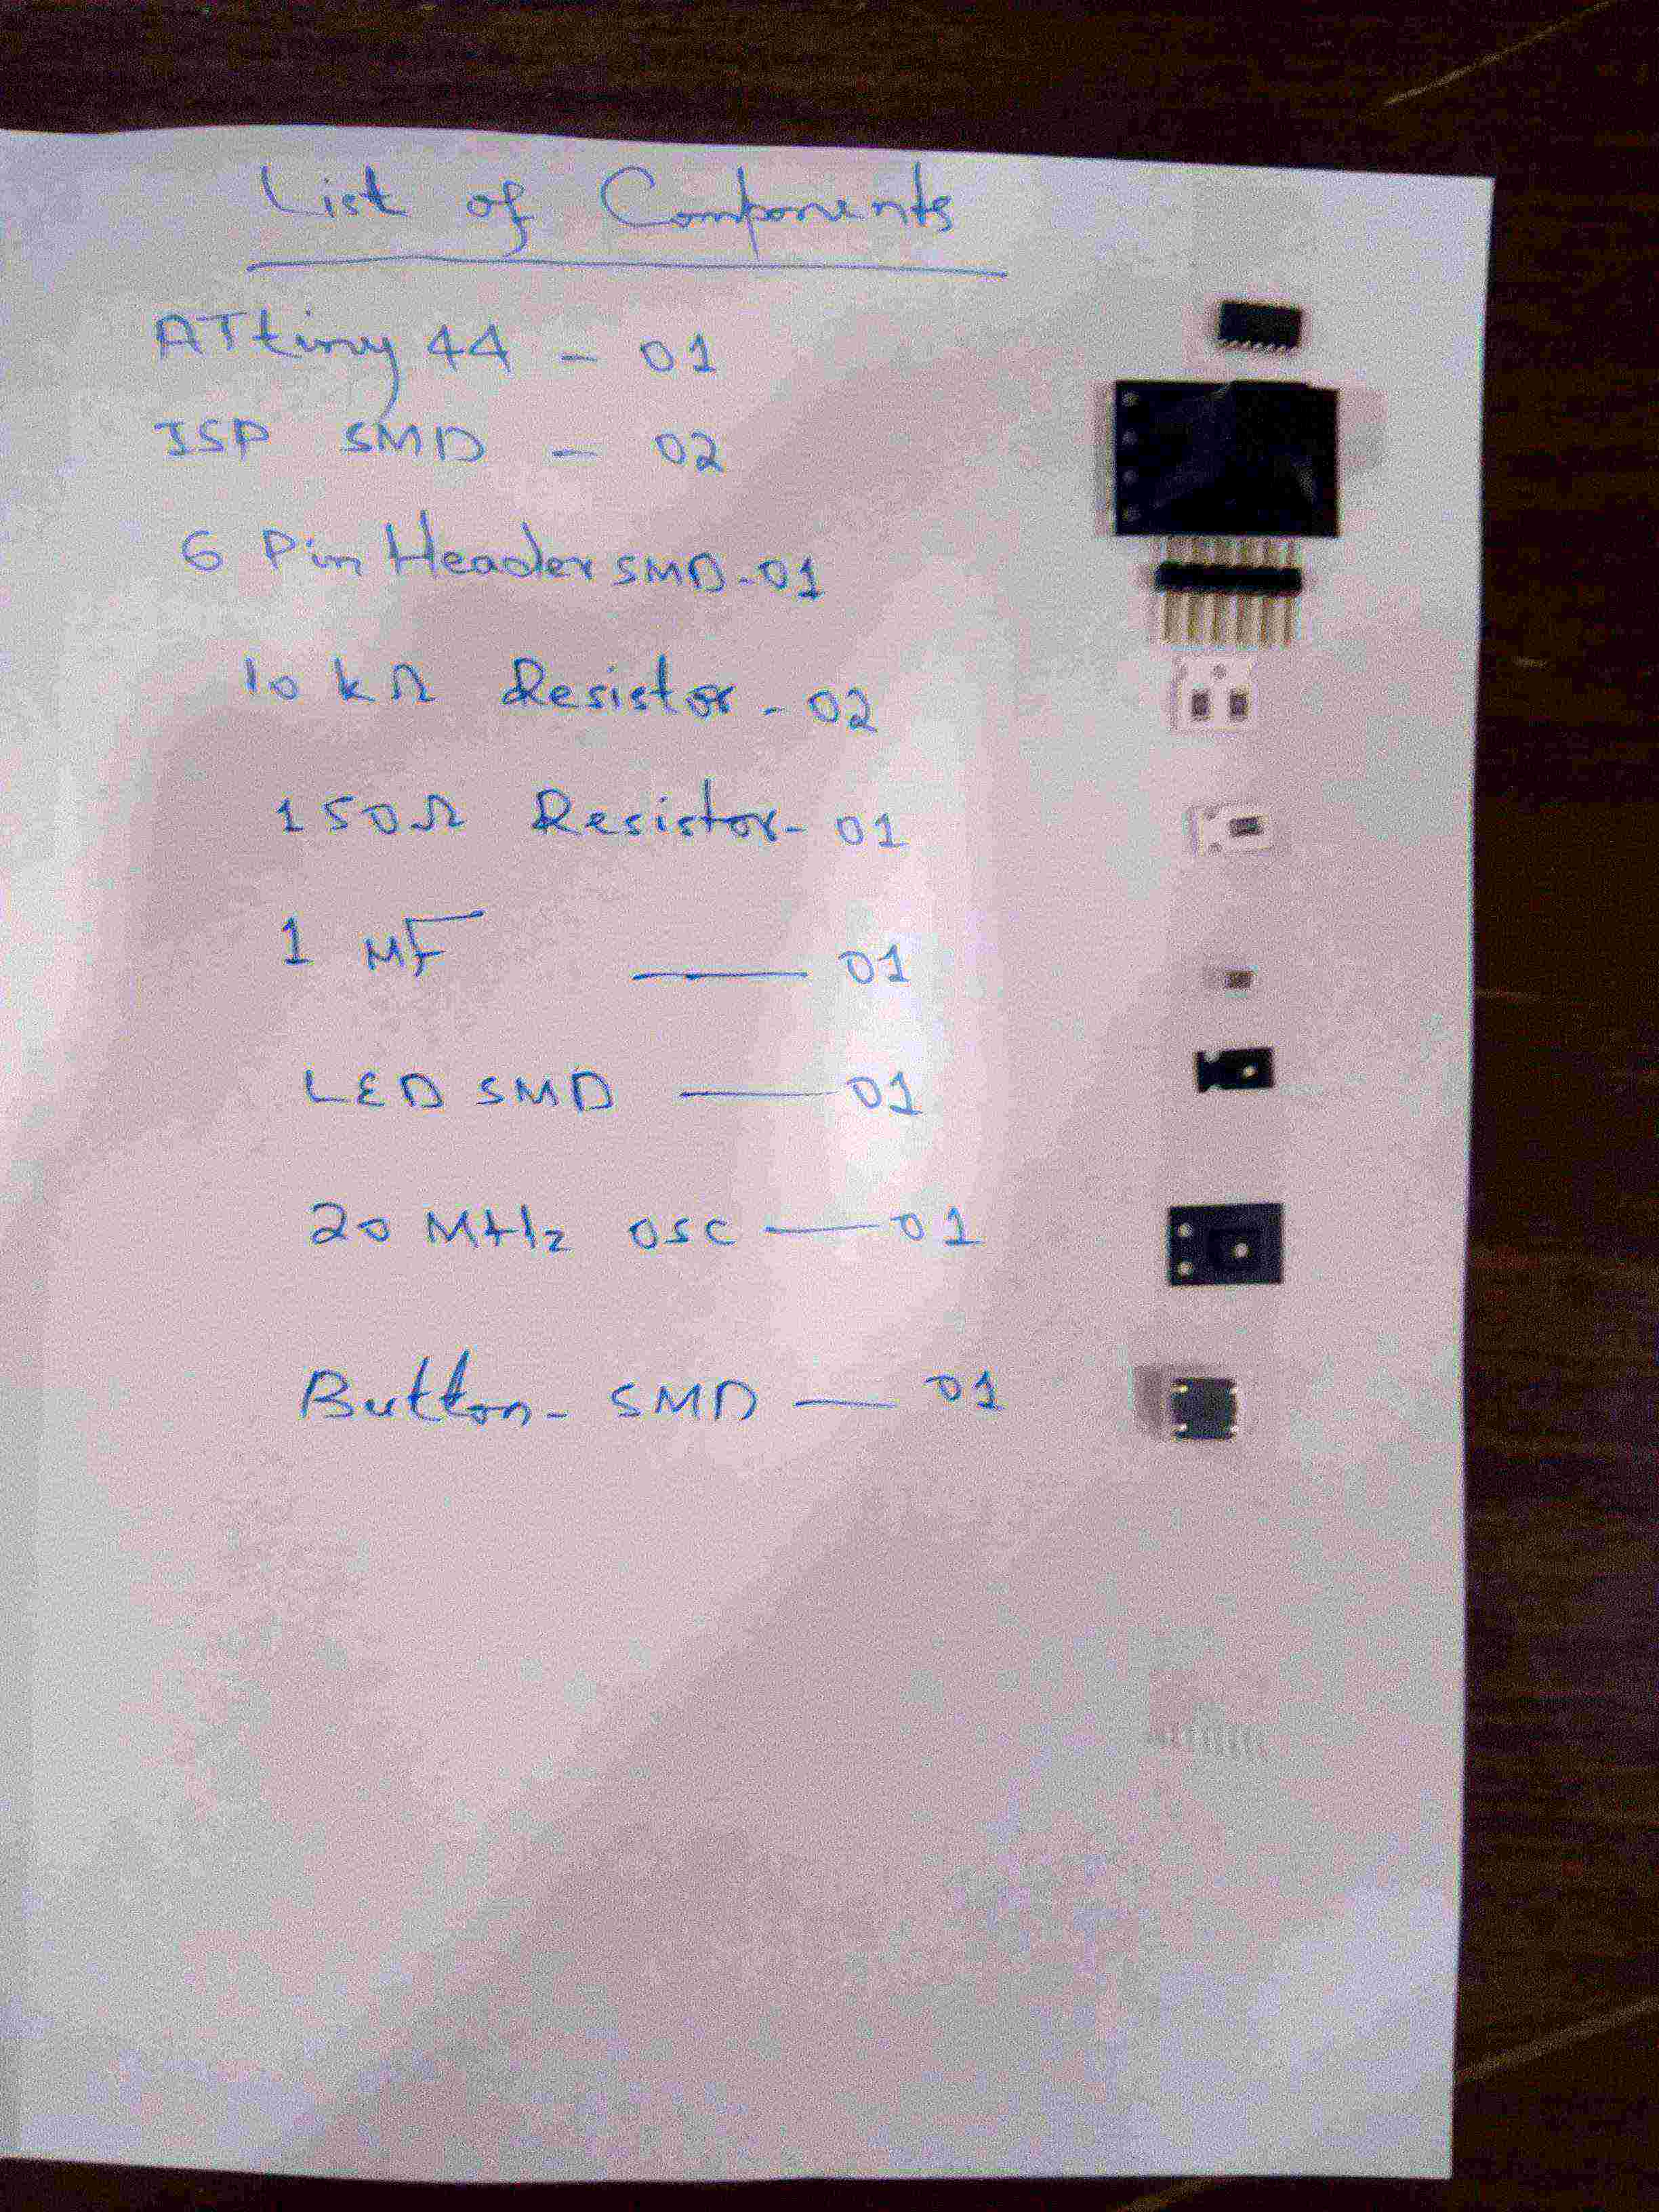 List of Components
ATtiny 44 - 01
ISP SMD - 02
6 Pin Header SMD - 01
10 kΩ Resistor - 02
150Ω Resistor - 01
1 MF — 01
LED SMD — 01
20 MHz OSC — 01
Button - SMD — 01